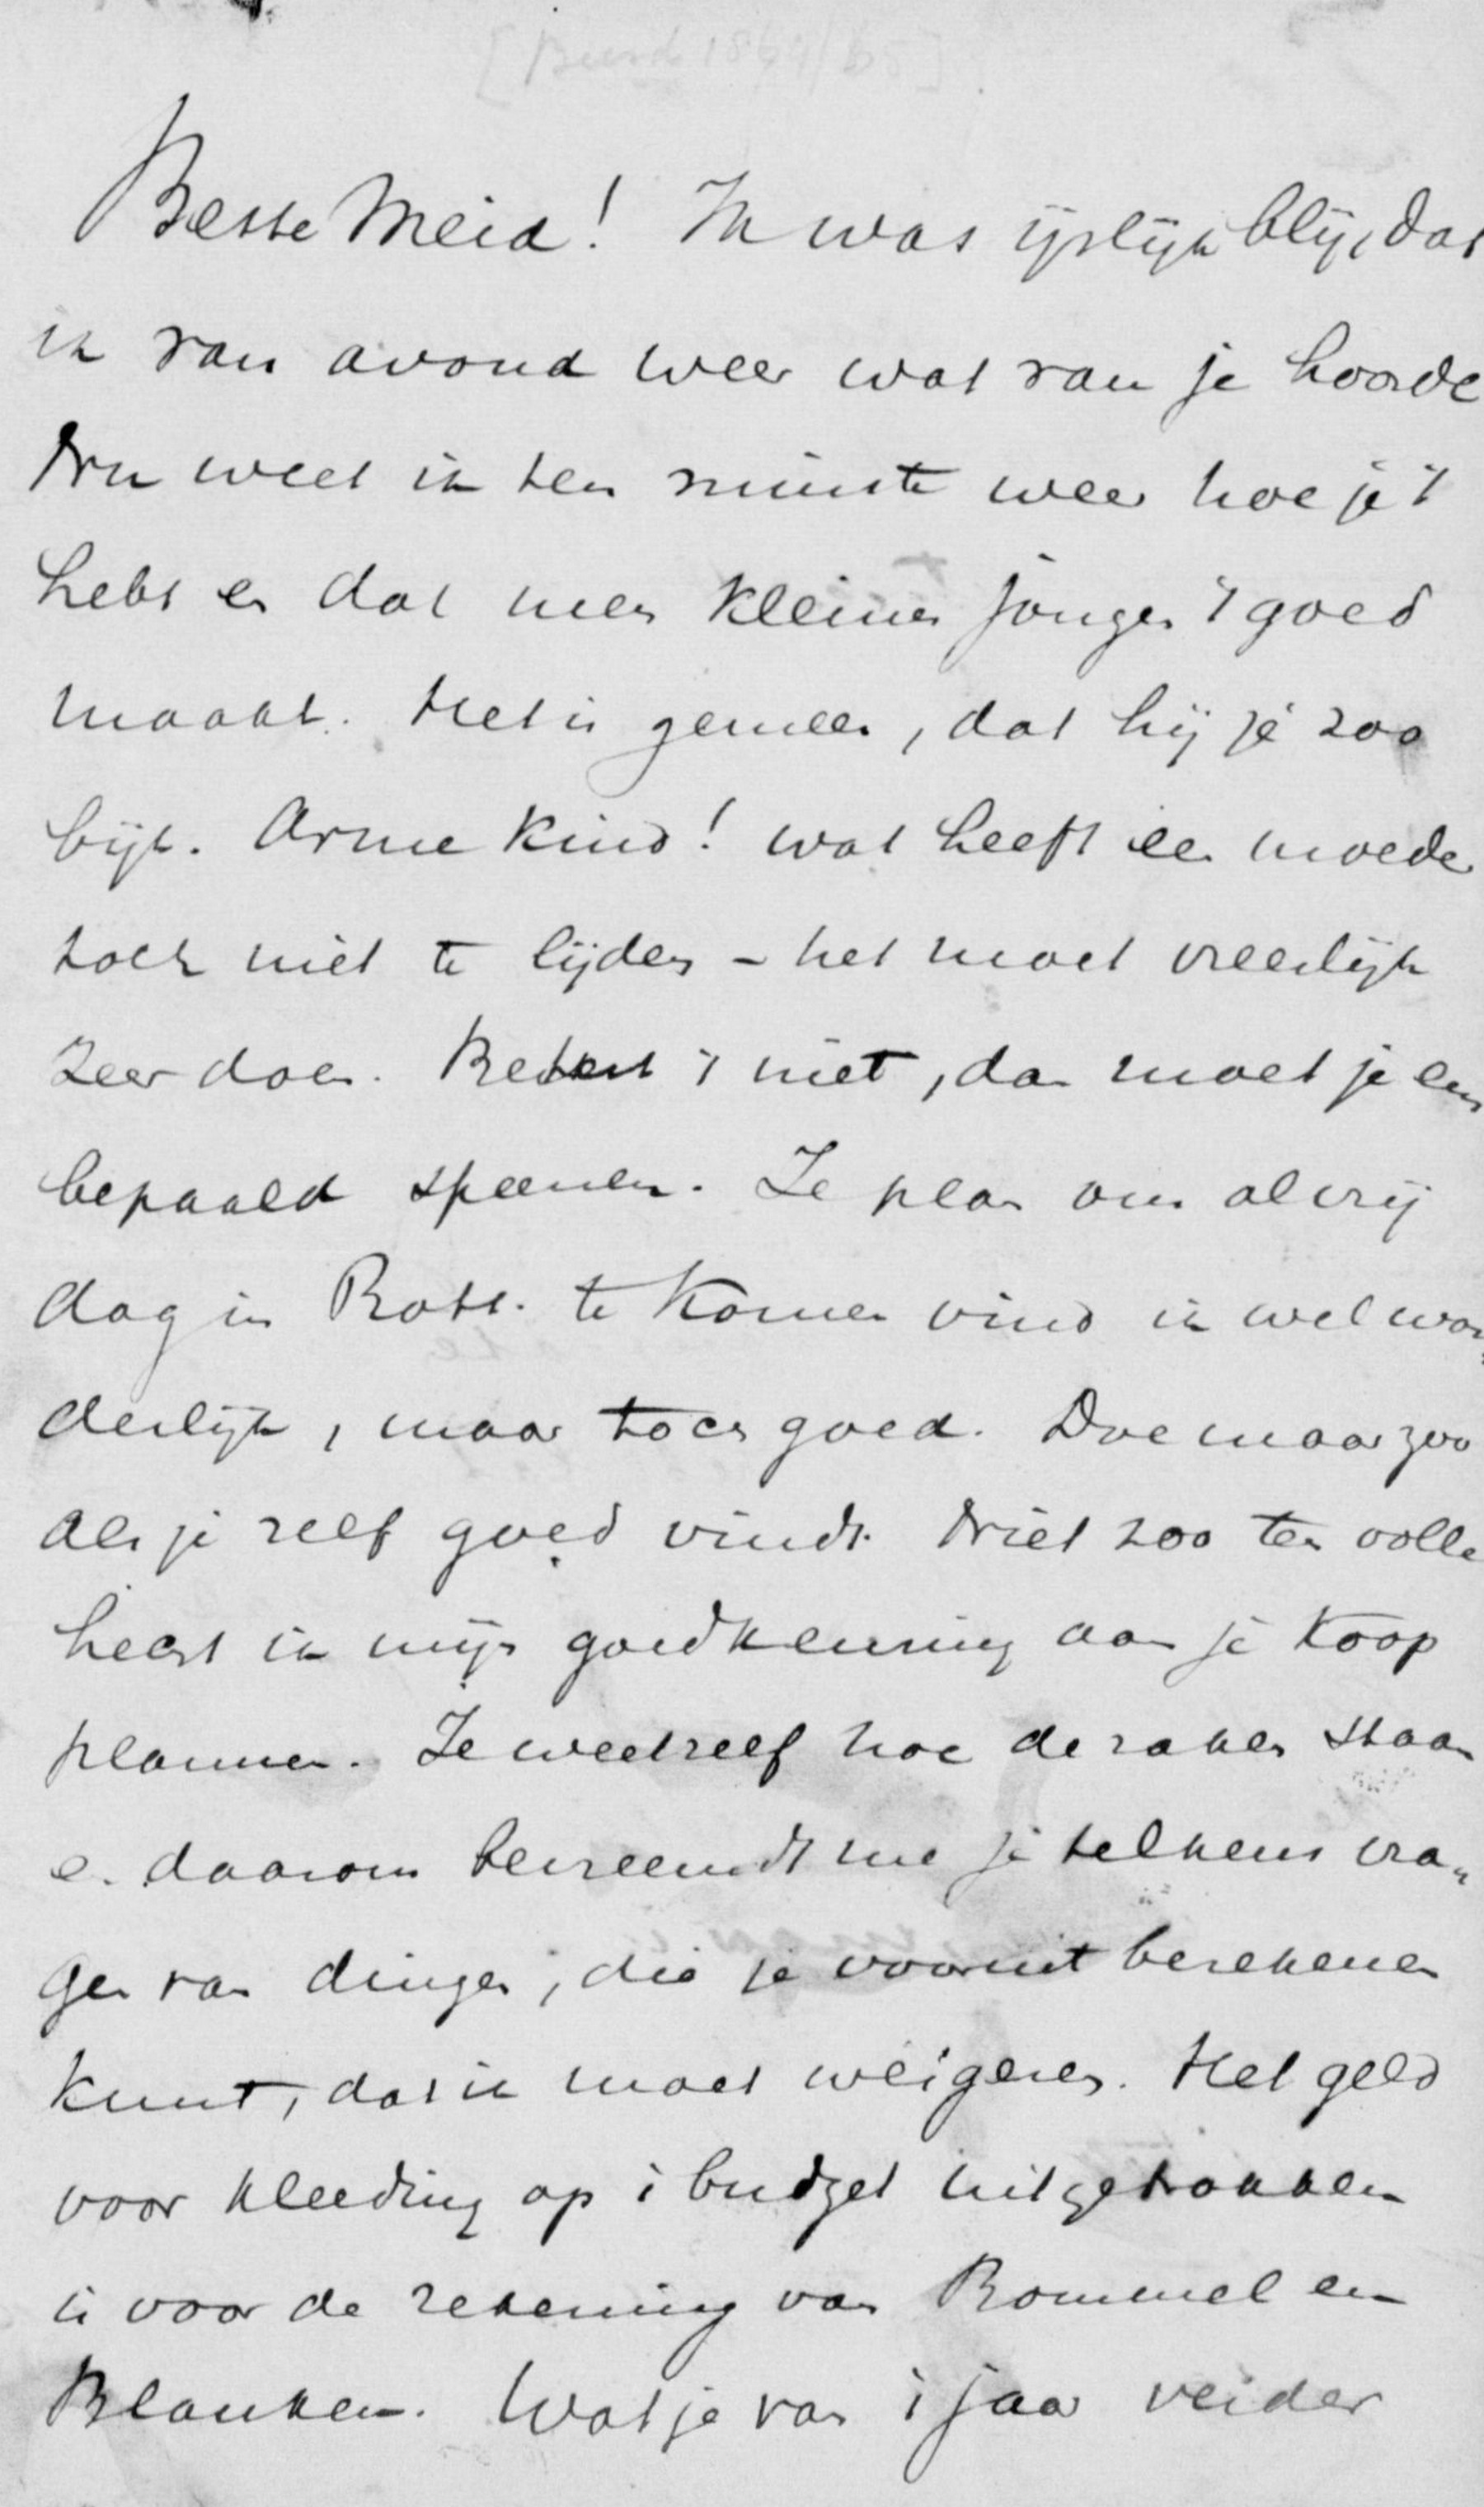 Beste Meid! Ik was ijslijk blij, dat
ik van avond weer wat van je hoorde
Nu weet ik ten minste weer hoe je 't
hebt en dat mijn kleine jongen 't goed
maakt. Het is gemeen, dat hij je zoo
bijt. Arme kind! wat heeft een moeder
toch niet te lijden – het moet vreeslijk
zeer doen. Betert 't niet, dan moet je hem
bepaald speenen. Je plan om al vrij
dag in Rott. te komen vind ik wel won
derlijk, maar toch goed. Doe maar zoo
als je zelf goed vindt. Niet zoo ten volle
hecht ik mijn goedkeuring aan je koop
plannen. Je weet zelf hoe de zaken staan
en daarom bevreemdt me je telkens vra„
gen van dingen, die je vooruit berekenen
kunt, dat ik moet weigeren. Het geld
voor kleeding op 't budget uitgetrokken
is voor de rekening van Bommel en
Blanken. Wat je van 't jaar verder